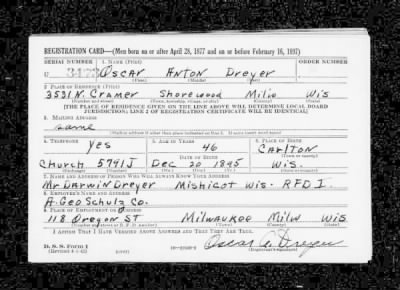 REGISTRATION CARD—(Men born on or after April 28, 1877 and on or before February 16, 1897)
SERIAL NUMBER 1. NAME (Print) ORDER NUMBER
U 3473 OSCAR ANTON Dreyer
2. PLACE OF RESIDENCE (Print)
3531 N. CRAMER Shorewood Milw Wis
(Number and street) (Town, township, village, or city) (County) (State)
[THE PLACE OF RESIDENCE GIVEN ON THE LINE ABOVE WILL DETERMINE LOCAL BOARD
JURISDICTION; LINE 2 OF REGISTRATION CERTIFICATE WILL BE IDENTICAL]
3. MAILING ADDRESS
same
[Mailing address if other than place indicated on line 2. If same insert word same]
4. TELEPHONE 5. AGE IN YEARS 6. PLACE OF BIRTH
yes 46 CARLTON
DATE OF BIRTH (Town or county)
Church 5741J Dec 20 1895 Wis.
(Exchange) (Number) (Mo.) (Day) (Yr.) (State or country)
7. NAME AND ADDRESS OF PERSON WHO WILL ALWAYS KNOW YOUR ADDRESS
Mr DARWIN Dreyer Mishicot Wis. RFD I.
8. EMPLOYER'S NAME AND ADDRESS
A. Geo Schulz Co.
9. PLACE OF EMPLOYMENT OR BUSINESS
118 Oregon ST Milwaukee Milw Wis
(Number and street or R. F. D. number) (Town) (County) (State)
I AFFIRM THAT I HAVE VERIFIED ABOVE ANSWERS AND THAT THEY ARE TRUE.
D. S. S. Form 1 Oscar A. Dreyer
(Revised 4-1-42) (over) (Registrant's signature)